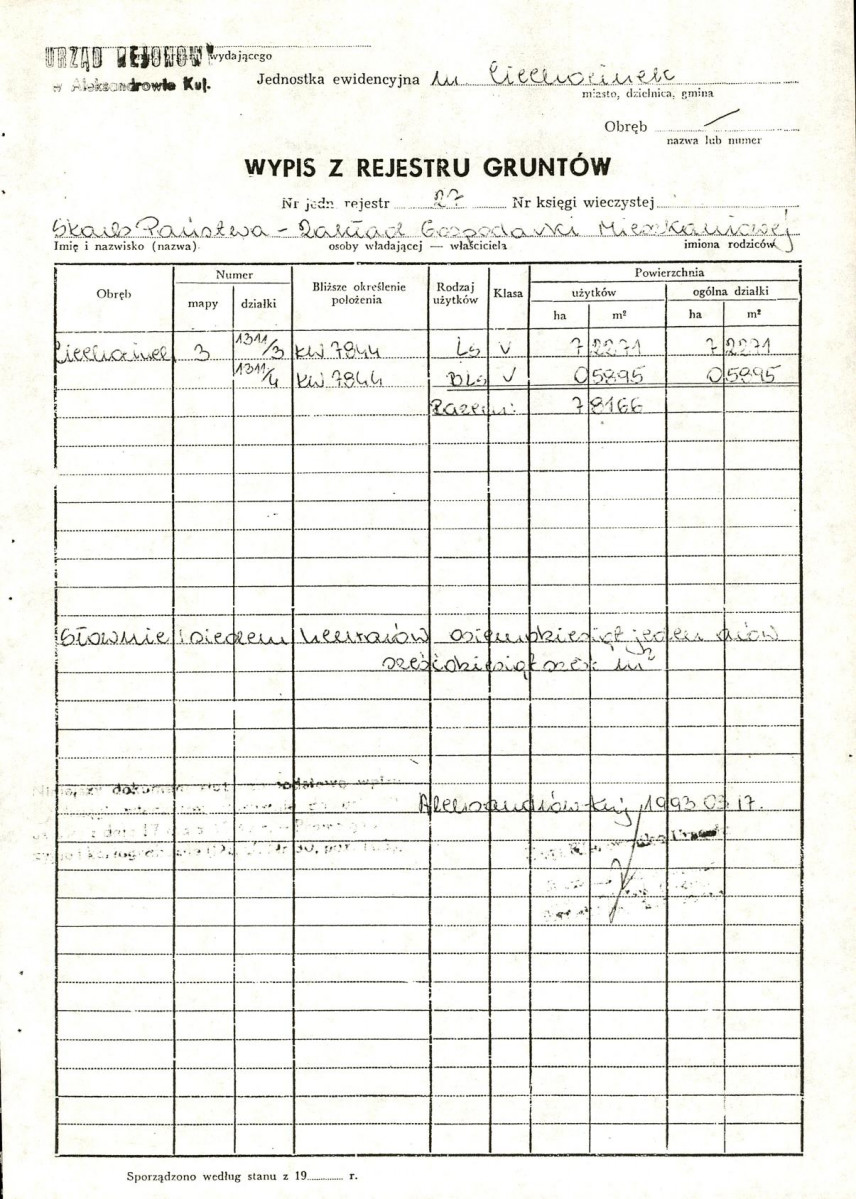 URZĄD REJONOWY wydającego
w Aleksandrowie Kuj.
Jednostka ewidencyjna m Ciechocinek
miasto, dzielnica, gmina
Obręb
nazwa lub numer
WYPIS Z REJESTRU GRUNTÓW
Nr jedn. rejestr 27 Nr księgi wieczystej
Skarb Państwa - Zakład Gospodarki Mieszkaniowej
Imię i nazwisko (nazwa) osoby władającej — właściciela imiona rodziców
Obręb Numer Bliższe określenie położenia Rodzaj użytków Klasa Powierzchnia
mapy działki użytków ogólna działki
ha m² ha m²
Ciechocinek 3 1311/3 KW 7844 Ls V 7 2271 7 2271
1311/4 KW 7844 BLs V 0 5895 0 5895
Razem: 7 8166
Słownie: siedem hektarów osiemdziesiąt jeden arów
sześćdziesiąt sześć m²
dokument
Aleksandrów Kuj 1993 03 17.
Sporządzono według stanu z 19 r.